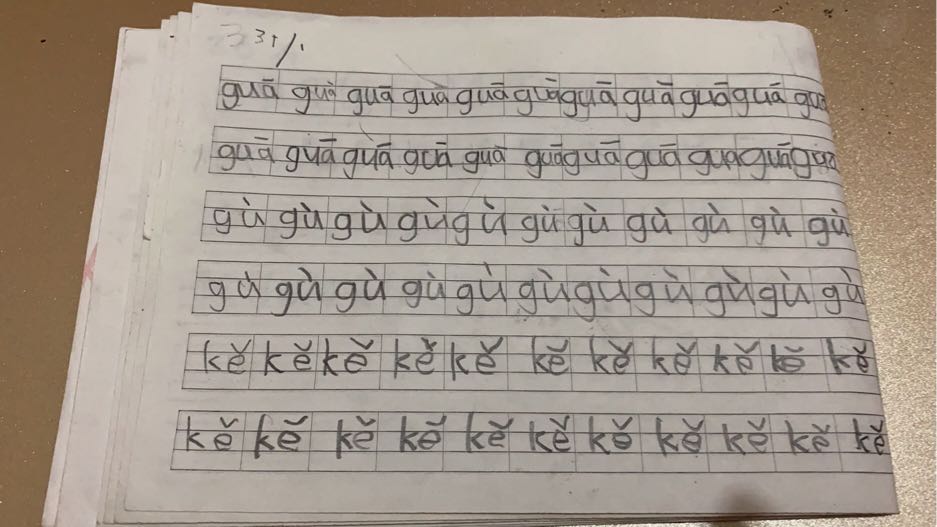 guā guā guā guā guā guā guā guā guā guā gua
guā guā guā guā guā guā guā guā gua guā gua
gù gù gù gù gù gù gù gù gù gù gù
gù gù gù gù gù gù gù gù gù gù gù
kě kě kě kě kě kě kě kě kě kě kě
kě kě kě kě kě kě kě kě kě kě kě